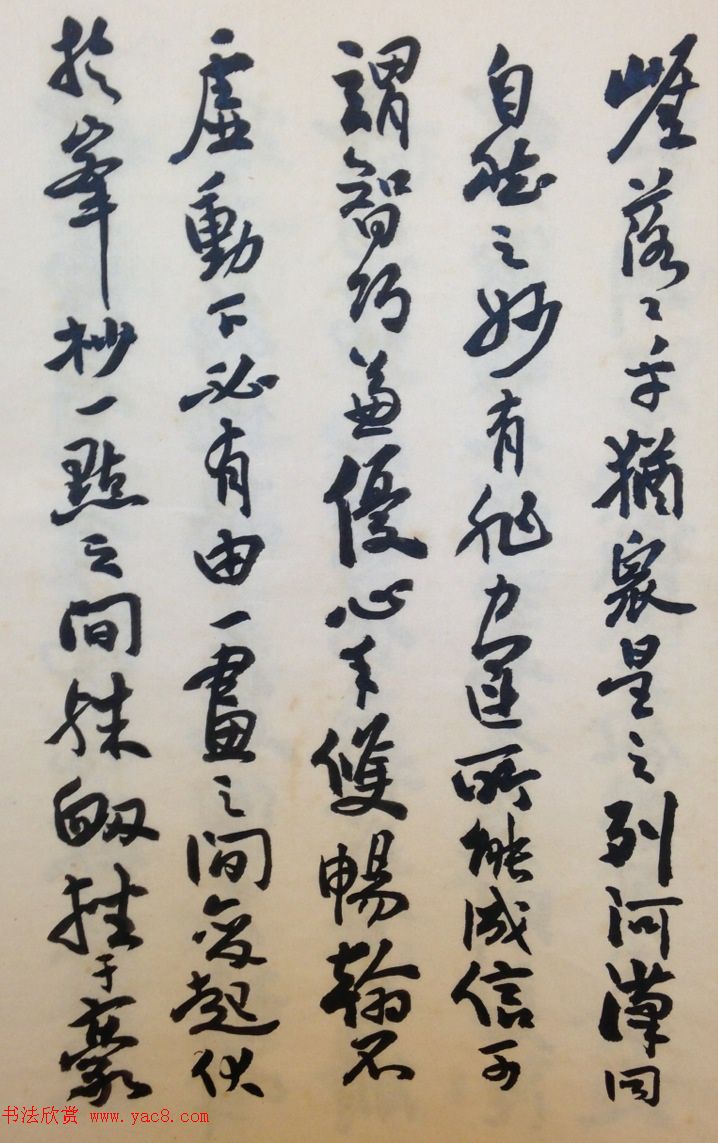 崖落〻乎猶衆星之列河漢同
自然之妙有非力運所能成信可
謂智巧兼優心手雙暢翰不
虛動下必有由一畫之間變起伏
於峯杪一點之間殊衄挫于豪
书法欣赏 www.yac8.com